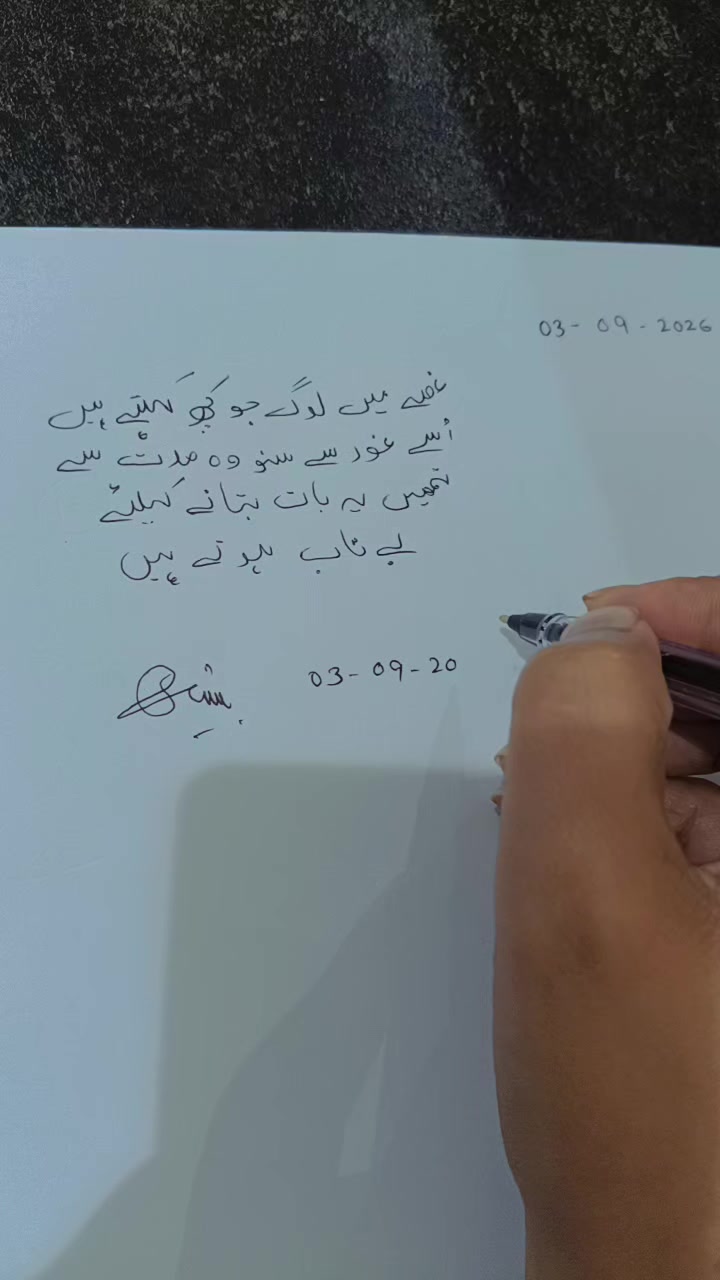 03-09-2026
غصے میں لوگ جو کچھ کہتے ہیں
اُسے غور سے سنو وہ مدت سے
تمہیں یہ بات بتانے کیلئے
بے تاب ہوتے ہیں
03-09-20